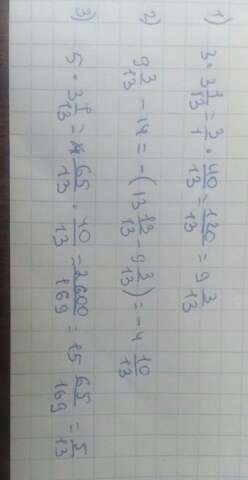 1) 3 · 3 1/13 = 3/1 · 40/13 = 120/13 = 9 3/13
2) 9 3/13 - 14 = -(13 13/13 - 9 3/13) = -4 10/13
3) 5 · 3 1/13 = 65/13 · 40/13 = 2600/169 = 15 65/169 = 5/13